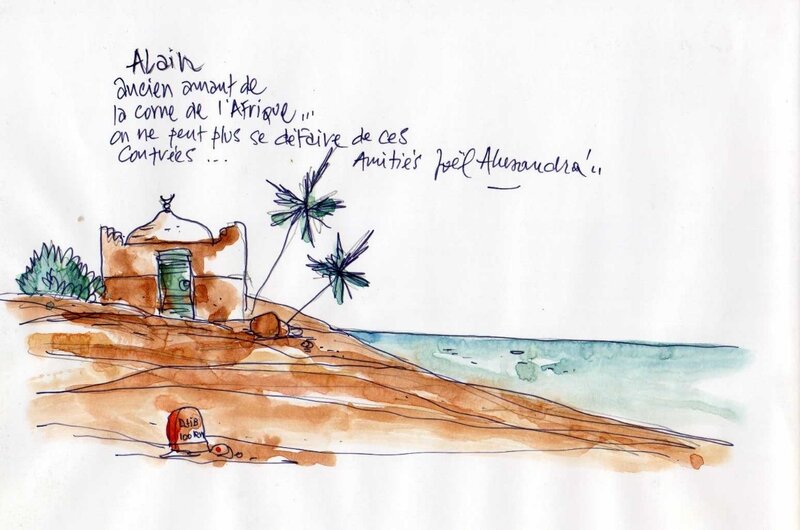 Alain
ancien amant de
la corne de l'Afrique...
on ne peut plus se défaire de ces
contrées...
Amitiés Joël Alessandra..
DJIB
100 KM